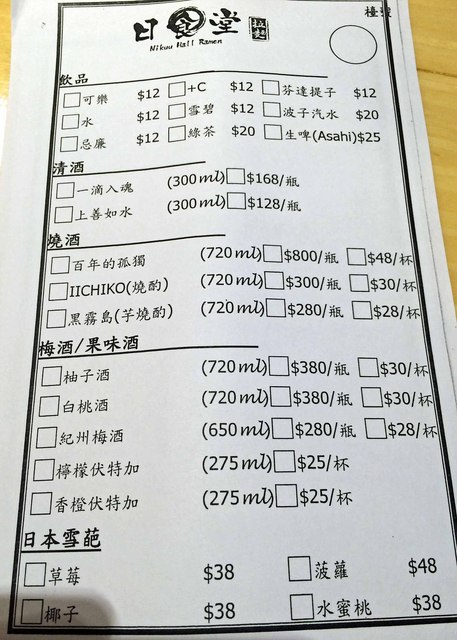 日食堂 拉麵
Nikuu Hall Ramen
檯號
飲品
可樂 $12 +C $12 芬達提子 $12
水 $12 雪碧 $12 波子汽水 $20
忌廉 $12 綠茶 $20 生啤(Asahi)$25
清酒
一滴入魂 (300ml) $168/瓶
上善如水 (300ml) $128/瓶
燒酒
百年的孤獨 (720ml) $800/瓶 $48/杯
IICHIKO(燒酌) (720ml) $300/瓶 $30/杯
黑霧島(芋燒酌) (720ml) $280/瓶 $28/杯
梅酒/果味酒
柚子酒 (720ml) $380/瓶 $30/杯
白桃酒 (720ml) $380/瓶 $30/杯
紀州梅酒 (650ml) $280/瓶 $28/杯
檸檬伏特加 (275ml) $25/杯
香橙伏特加 (275ml) $25/杯
日本雪葩
草莓 $38 菠蘿 $48
椰子 $38 水蜜桃 $38